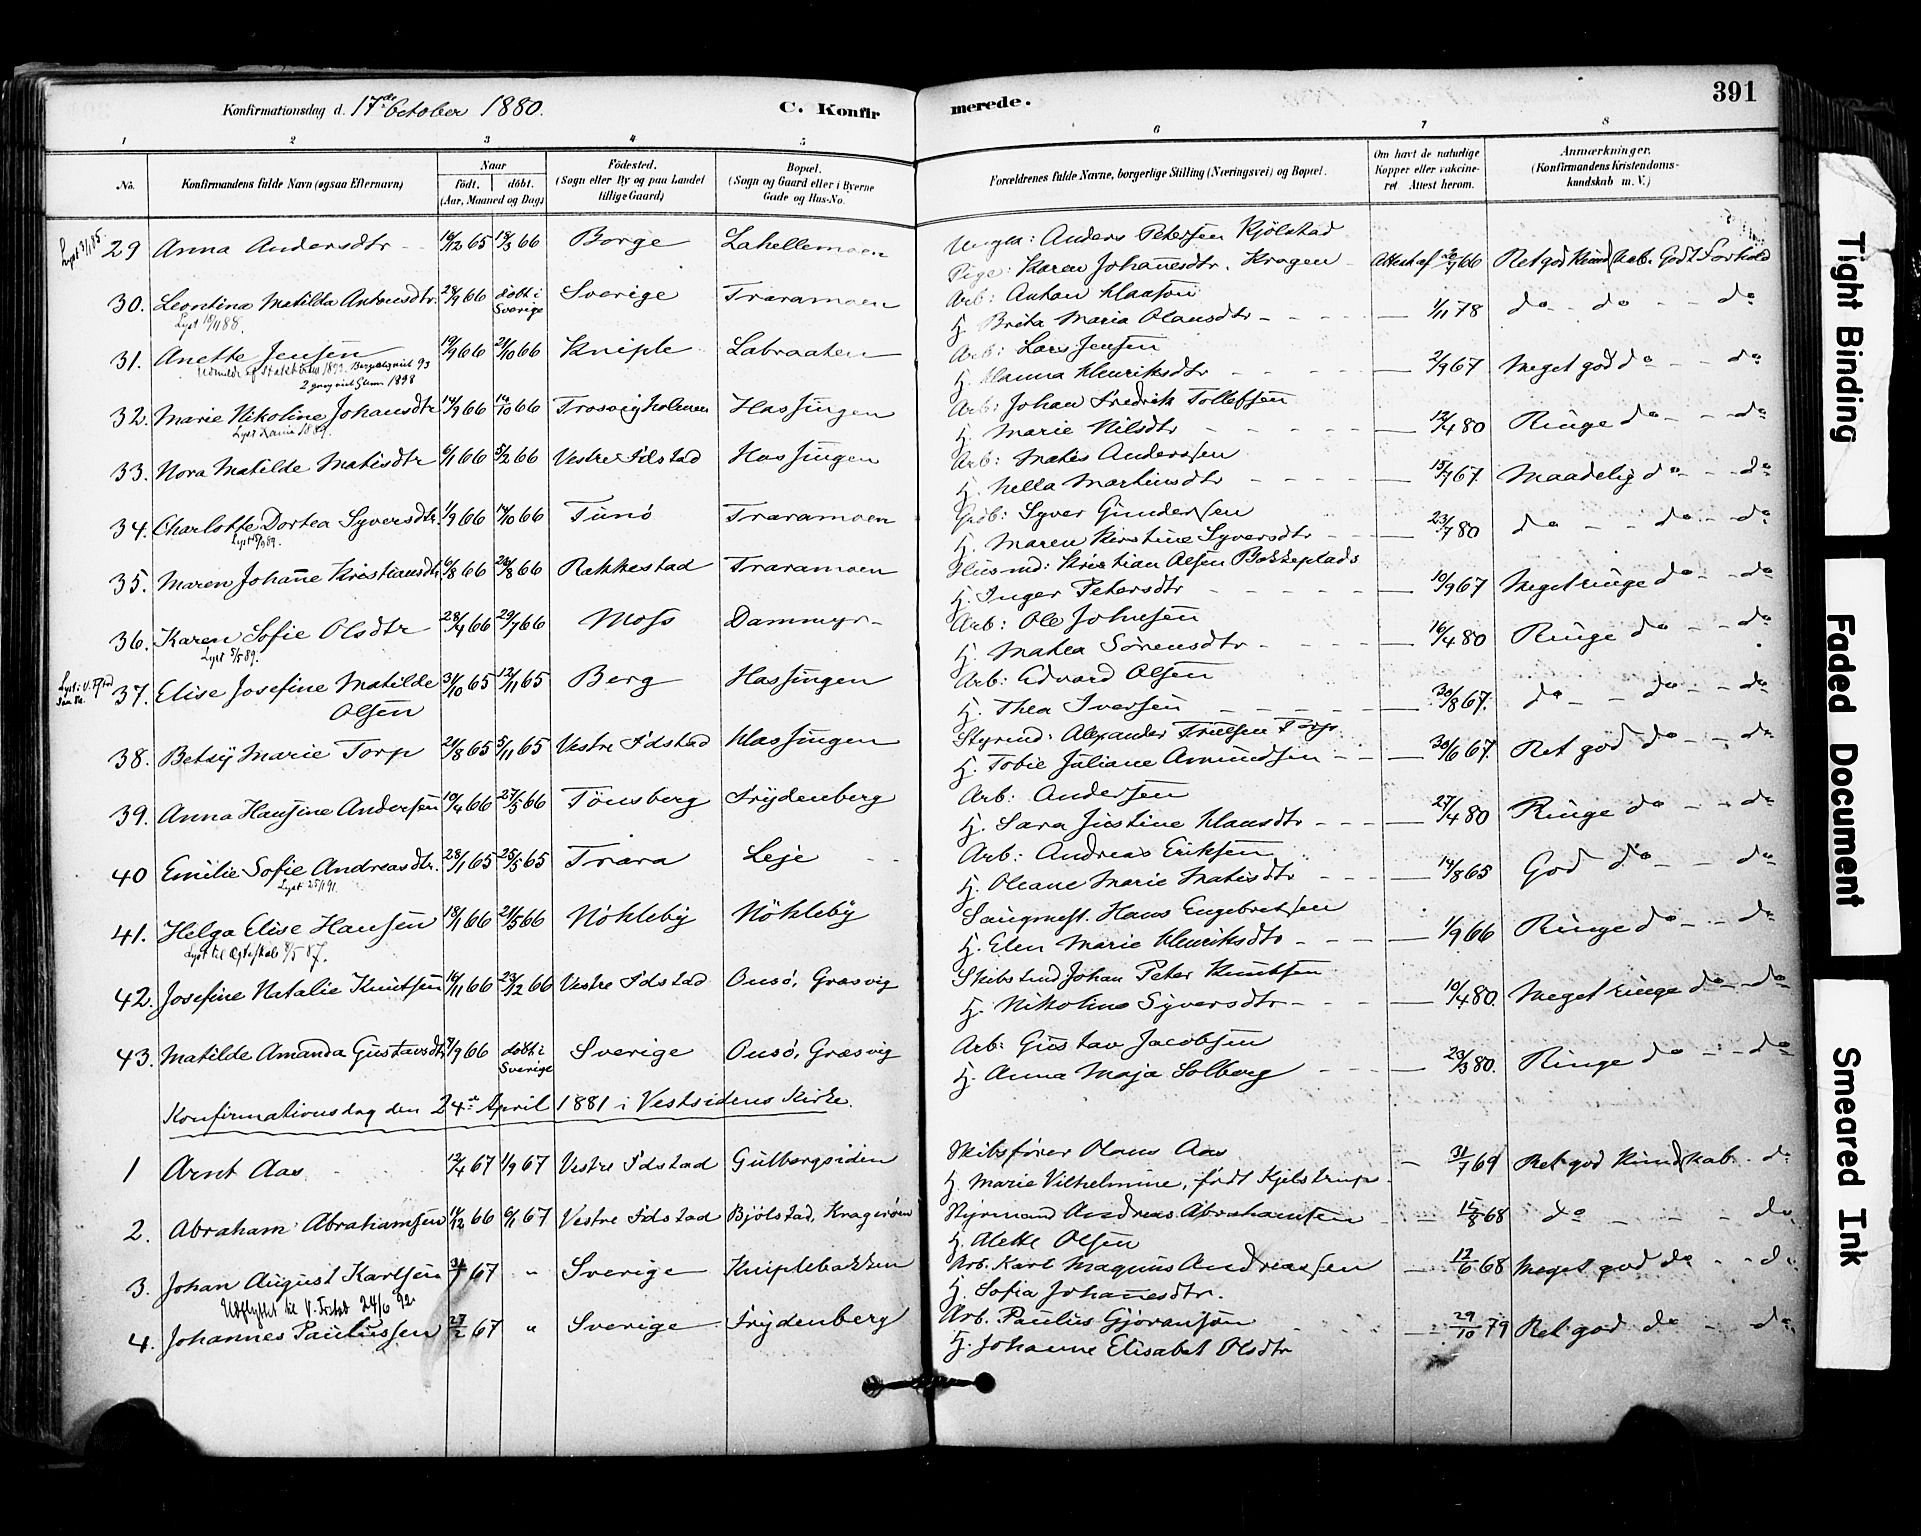 391
Konfirmationsdag d. 17de October 1880. C. Konfirmerede.
1 2 3 4 5 6 7 8
No. Konfirmandens fulde Navn (ogsaa Efternavn) Naar født. døbt. (Aar, Maaned og Dag) Födested. (Sogn eller By og paa Landet tillige Gaard) Bopæl. (Sogn og Gaard eller i Byerne Gade og Hus-No. Forældrenes fulde Navne, borgerlige Stilling (Næringsvei) og Bopæl. Om havt de naturlige Kopper eller vakcineret Attest herom. Anmærkninger. (Konfirmandens Kristendomskundskab m. V.)
Lyst 3/1 85. 29 Anna Andersdtr 16/12 65 18/3 66 Borge Lahellemoen Ungkl: Anders Petersen Kjölstad
Pige: Karen Johannesdtr. Kragen Attest af 66 Ret god Kundskab. Godt Forhold
30. Leontina Matilda Antonsdtr. 28/9 66 döbt i Sverige Sverige Traramoen Arb: Anton Klaason
Lyst 88. H. Brita Maria Olausdtr 1/11 78 do do do
31. Anette Jensen 19/9 66 21/10 66 Kniple Labraaten Arb: Lars Jensen
2 gang 1898 H. Hanna Henriksdtr 2/9 67 Meget god do do
32. Marie Nikoline Johansdtr 14/9 66 14/10 66 Trosvigholmen Hassingen Arb: Johan Fredrik Tollefsen
Lyst 1889. H. Marie Nilsdtr 12/4 80 Ringe do do
33. Nora Matilde Matisdtr 6/1 66 5/2 66 Vestre Fdstad Hassingen Arb: Matis Anderssen
H. Nella Martinsdtr 15/7 67. Maadelig do do
34. Charlotte Dortea Syversdtr. 1/9 66 14/10 66 Tunö Traramoen Gröb: Syver Gundersen
Lyst 89. H. Maren Kirstine Syversdtr 23/7 80 do do do
35. Maren Johanne Kristiansdtr 6/8 66 26/8 66 Rakkestad Traramoen Husmd: Kristian Olsen Bakkeplads
H. Inger Petersdtr 10/9 67 Meget ringe do do
36. Karen Sofie Olsdtr 28/4 66 29/7 66 Moss Dammyr Arb: Ole Johnsen
Lyst 5/5 89. H. Matea Sörensdtr 16/4 80 Ringe do do
37. Elise Josefine Matilde Olsen 31/10 65 12/11 65 Berg Hassingen Arb: Edvard Olsen
H. Thea Iversen 30/8 67. do do do
38. Betsÿ Marie Torp 21/8 65 5/11 65 Vestre Fdstad Hassingen Styrmd: Alexander Truelsen Torp
H. Tobie Juliane Amundsen 30/6 67. Ret god do do
39. Anna Hansine Andersen 10/4 66 27/5 66 Tönsberg Frydenberg Arb: Andersen
H. Sara Justine Klausdtr 27/4 80 Ringe do do
40 Emilie Sofie Andreasdtr. 28/1 65 25/5 65 Trara Leje Arb: Andreas Eriksen
Lyst 91. H. Oleane Marie Matisdtr 14/8 65 God do do
41. Helga Elise Hansen 18/1 66 21/5 66 Nökleby Nökleby Saugmest. Hans Engebretsen
Lyst til Ægteskab 8/5 87. H. Elen Marie Henriksdtr 1/9 66 Ringe do do
42. Josefine Natalie Knutsen 16/11 66 23/12 66 Vestre Fdstad Onsö, Græsvig Skibstmd Johan Peter Knutsen
H. Nikoline Syversdtr 10/4 80. Meget ringe do do
43. Matilde Amanda Gustavsdtr /9 66 döbt i Sverige Sverige Onsö, Græsvig Arb: Gustav Jacobsen
H. Anna Maja Solberg 23/3 80. Ringe do do
Konfirmationsdag den 24de April 1881 i Vestsidens Kirke.
1 Arnt Aas 12/4 67 1/9 67 Vestre Fdstad Gulbergsiden Skibsförer Olaus Aas
H. Marie Vilhelmine, födt Kjelstrup 31/7 69 Ret god Kundskab. do
2. Abraham Abrahamsen 11/12 66 6/1 67 Vestre Fdstad Bjölstad, Kragerøen Styrmand Andreas Abrahamsen 15/8 68 do do
H. Alette Olsen
3. Johan August Karlsen 31/7 67 " Sverige Kniplebakken Arb. Karl Magnus Andreassen 12/6 68 Meget god do do
Udflyttet til V. Frstad 24/6 92. H. Sofia Johannesdtr.
4. Johannes Paulussen 27/2 67 " Sverige Frydenberg Arb. Paulus Gjöranson 29/10 79 Ret god do do
H. Johanne Elisabet Olsdtr
Tight Binding
Faded Document
Smeared Ink